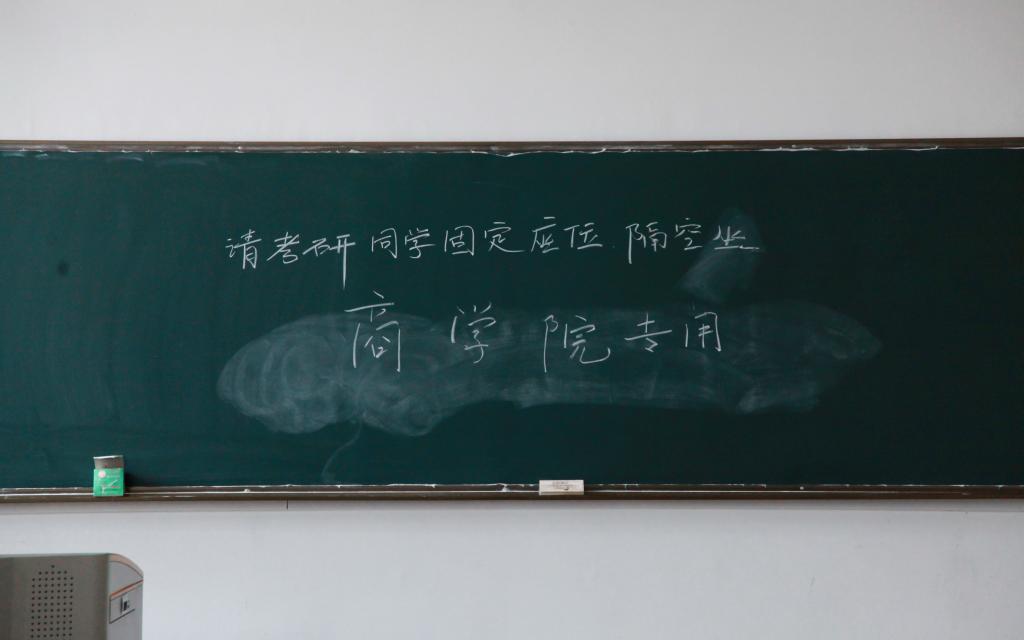 请考研同学固定座位.隔空坐
商学院专用